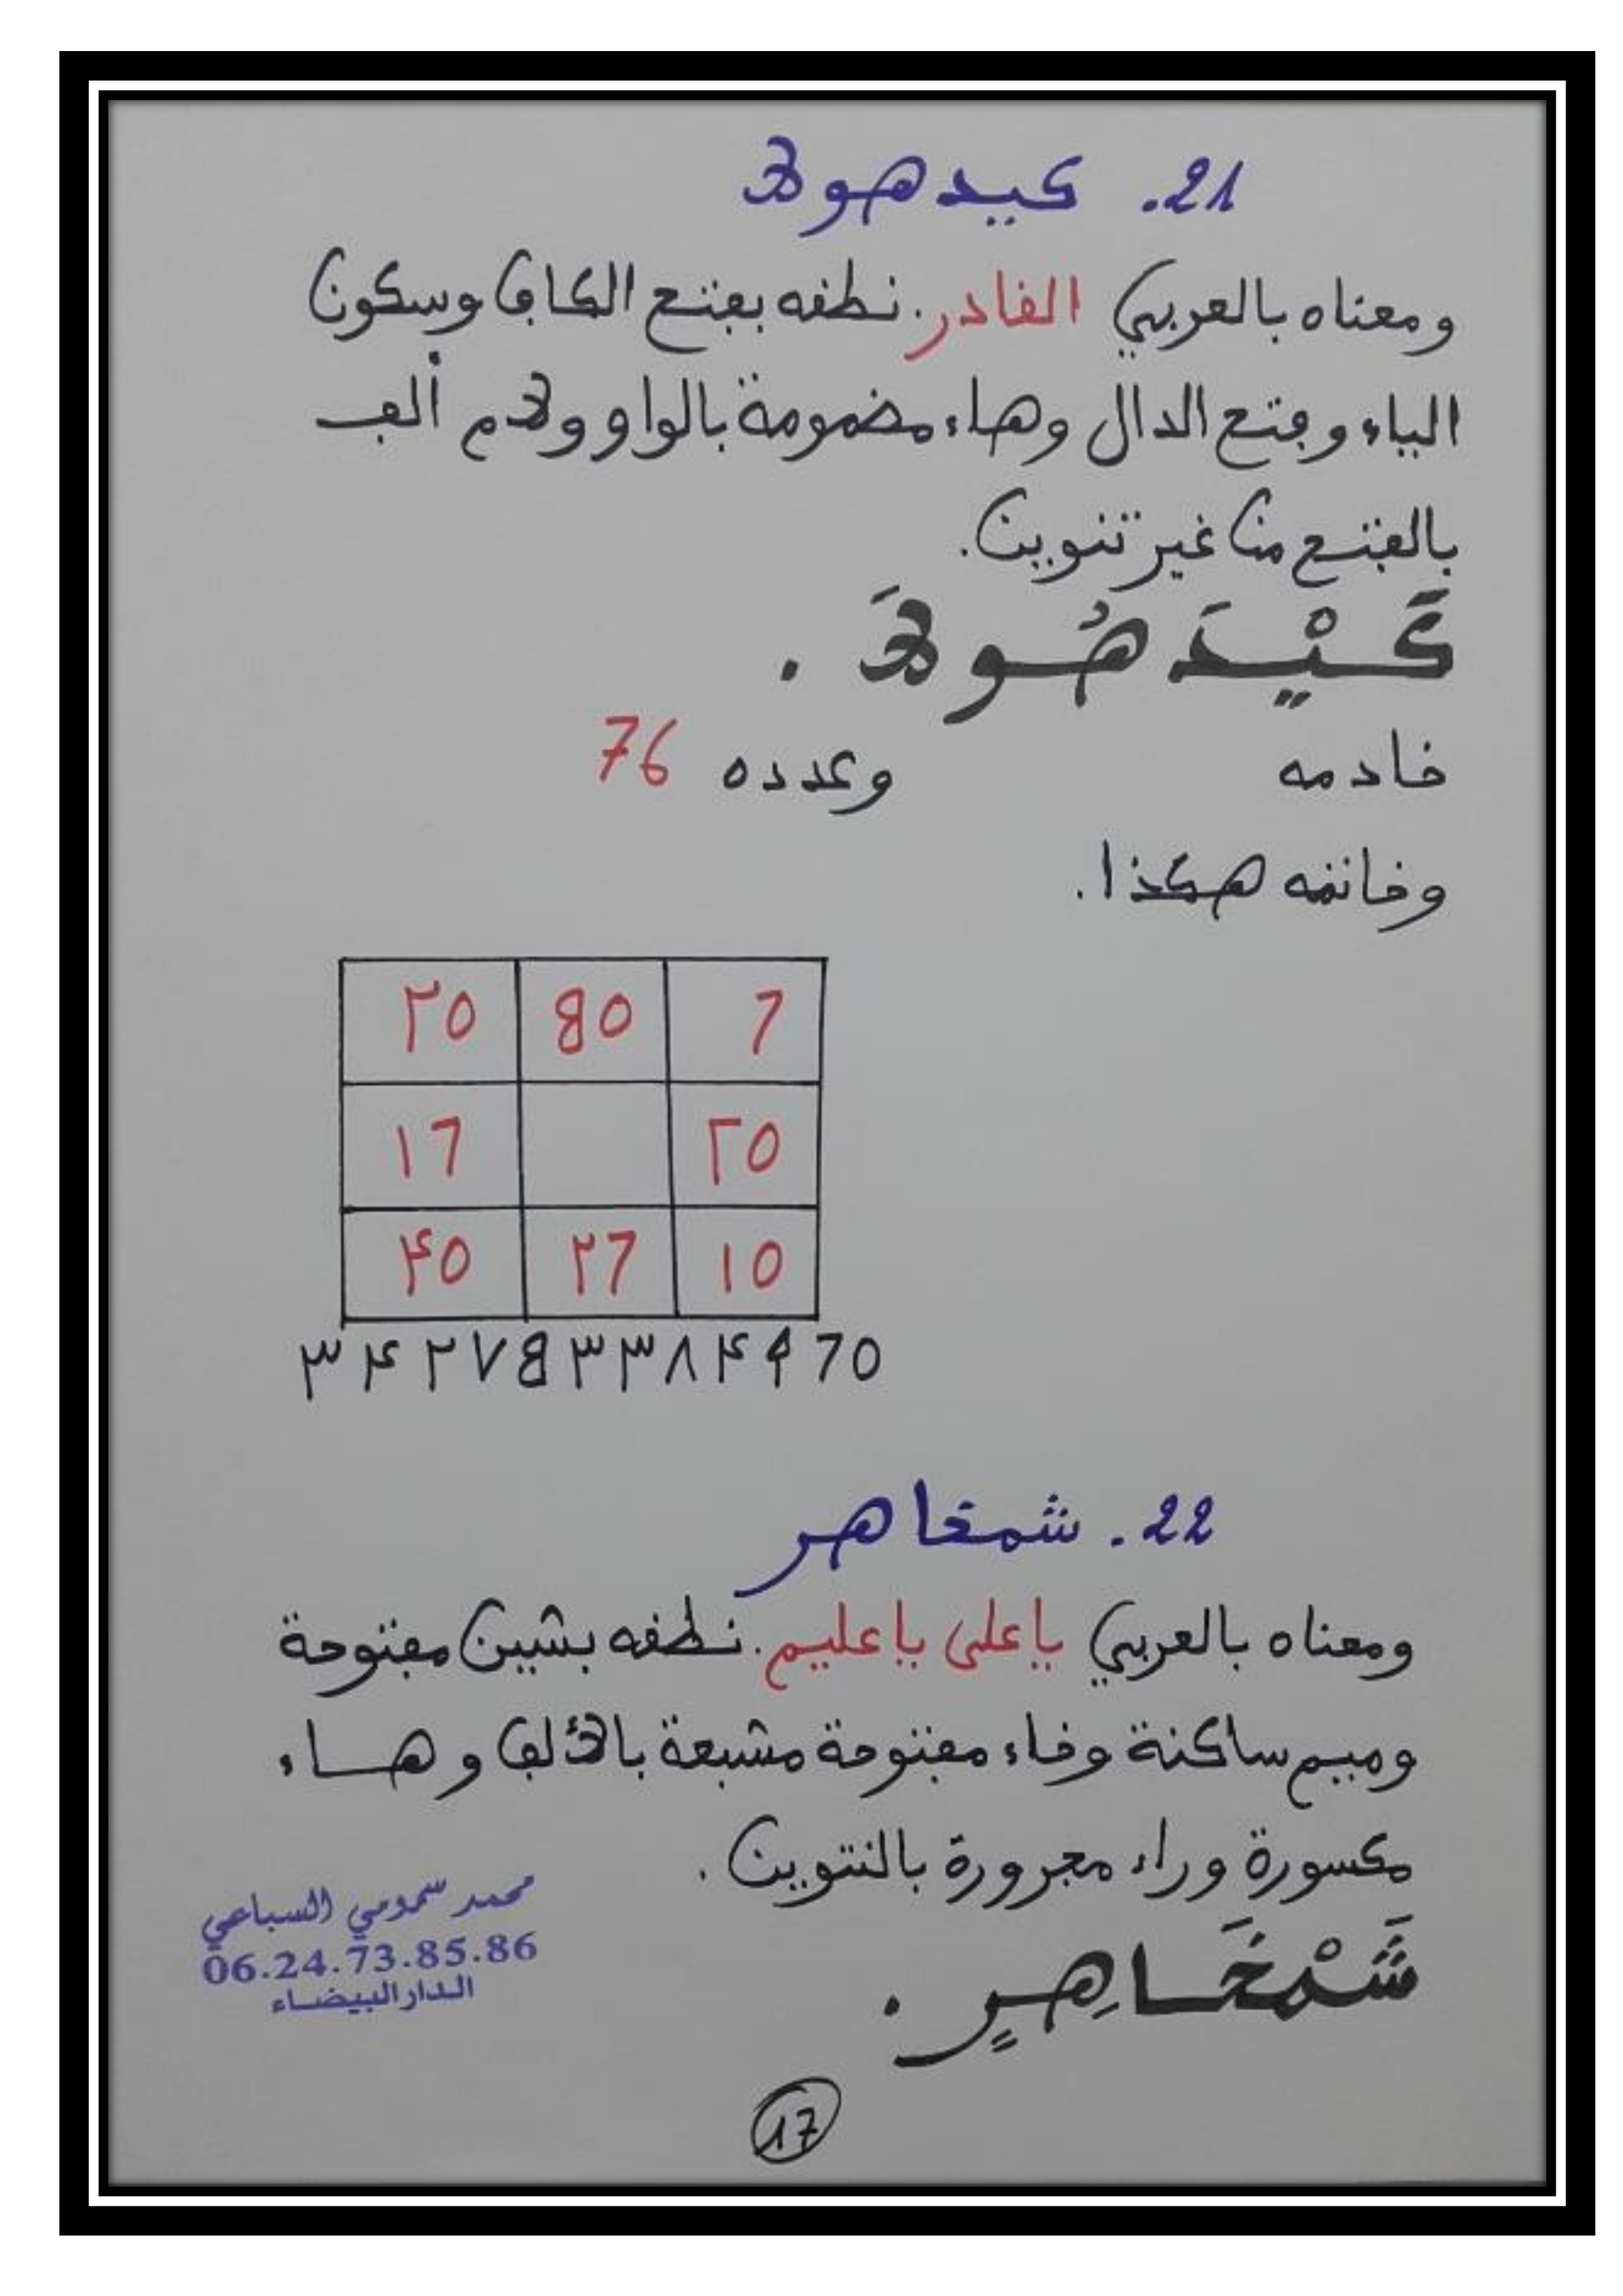 21. كيدهولا
ومعناه بالعربي القادر. نطقه بفتح الكاف وسكون
الياء وفتح الدال وهاء مضمومة بالواو ولام ألف
بالفتح من غير تنوين.
كَيْدَهُولَا .
خادمه وعدده 76
وخاتمه هكذا.
٢٥ 8٥ 7
١7 ٢٥
٤٥ ٢7 ١٥
٣ ٤ ٢ ٧ 8 ٣ ٣ ٨ ٤ ٩ 7 ٥
22. شمخاهر
ومعناه بالعربي ياعلى ياعليم. نطقه بشين مفتوحة
وميم ساكنة وخاء مفتوحة مشبعة بالألف وهاء
مكسورة وراء مجرورة بالتنوين.
شَمْخَاهِرٍ .
محمد سمومي السباعي
06.24.73.85.86
الدار البيضاء
17